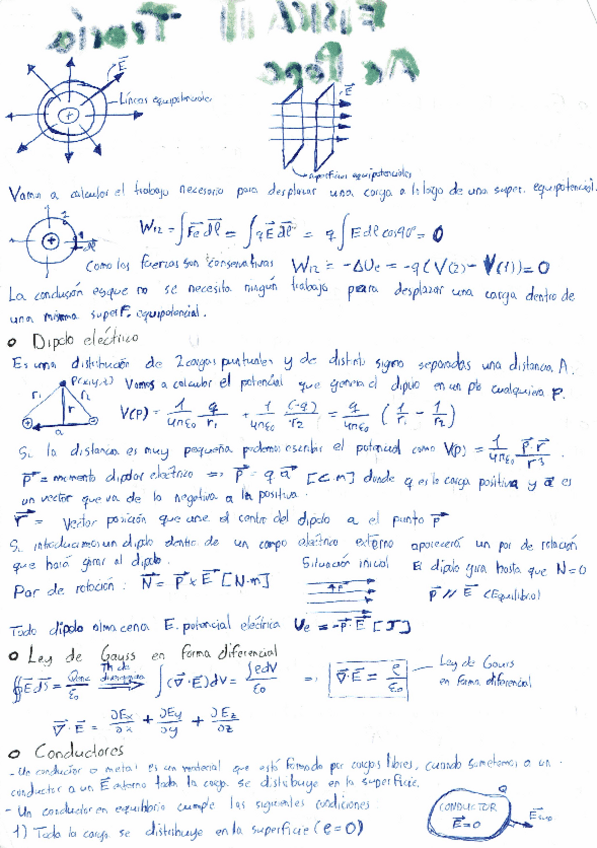 FISICA III Teoría
E
Líneas equipotenciales
E
superficies equipotenciales
Vamos a calcular el trabajo necesario para desplazar una carga a lo largo de una super. equipotencial.
W₁₂ = ∫F⃗e dl⃗ = ∫qE⃗ dl⃗ = q∫E dl cos90° = 0
Como las fuerzas son conservativas W₁₂ = -ΔUe = -q(V(2) - V(1)) = 0
La conclusión es que no se necesita ningún trabajo para desplazar una carga dentro de
una misma superf. equipotencial.
o Dipolo eléctrico
Es una distribución de 2 cargas puntuales y de distinto signo separadas una distancia A.
P(x,y,z) Vamos a calcular el potencial que genera el dipolo en un pto cualquiera P.
r₁ r r₂ a
V(P) = 1/4πε₀ q/r₁ + 1/4πε₀ (-q)/r₂ = q/4πε₀ (1/r₁ - 1/r₂)
Si la distancia es muy pequeña podemos escribir el potencial como V(P) = 1/4πε₀ p⃗·r⃗/r³.
p⃗ = momento dipolar electrico => p⃗ = q·a⃗ [C·m] donde q es la carga positiva y a⃗ es
un vector que va de la negativa a la positiva.
r⃗ = Vector posición que une el centro del dipolo a el punto P
Si introducimos un dipolo dentro de un campo eléctrico externo aparecerá un par de rotación
que hará girar al dipolo.
Situación inicial El dipolo gira hasta que N=0
Par de rotación: N⃗ = p⃗ x E⃗ [N·m]
p⃗ // E⃗ (Equilibrio)
Todo dipolo almacena E. potencial eléctrica Ue = -p⃗·E⃗ [J]
o Ley de Gauss en forma diferencial
∮E⃗ dS⃗ = Qenc/ε₀ Th de divergencia ∫(∇⃗·E⃗)dV = ∫ρdV/ε₀ => ∇⃗·E⃗ = ρ/ε₀
Ley de Gauss
en forma diferencial
∇⃗·E⃗ = ∂Ex/∂x + ∂Ey/∂y + ∂Ez/∂z
o Conductores
- Un conductor o metal es un material que está formado por cargas libres, cuando sometemos a un
conductor a un E⃗ externo toda la carga se distribuye en la superficie.
- Un conductor en equilibrio cumple las siguientes condiciones
1) Toda la carga se distribuye en la superficie (ρ=0)
Q
CONDUCTOR
E⃗=0